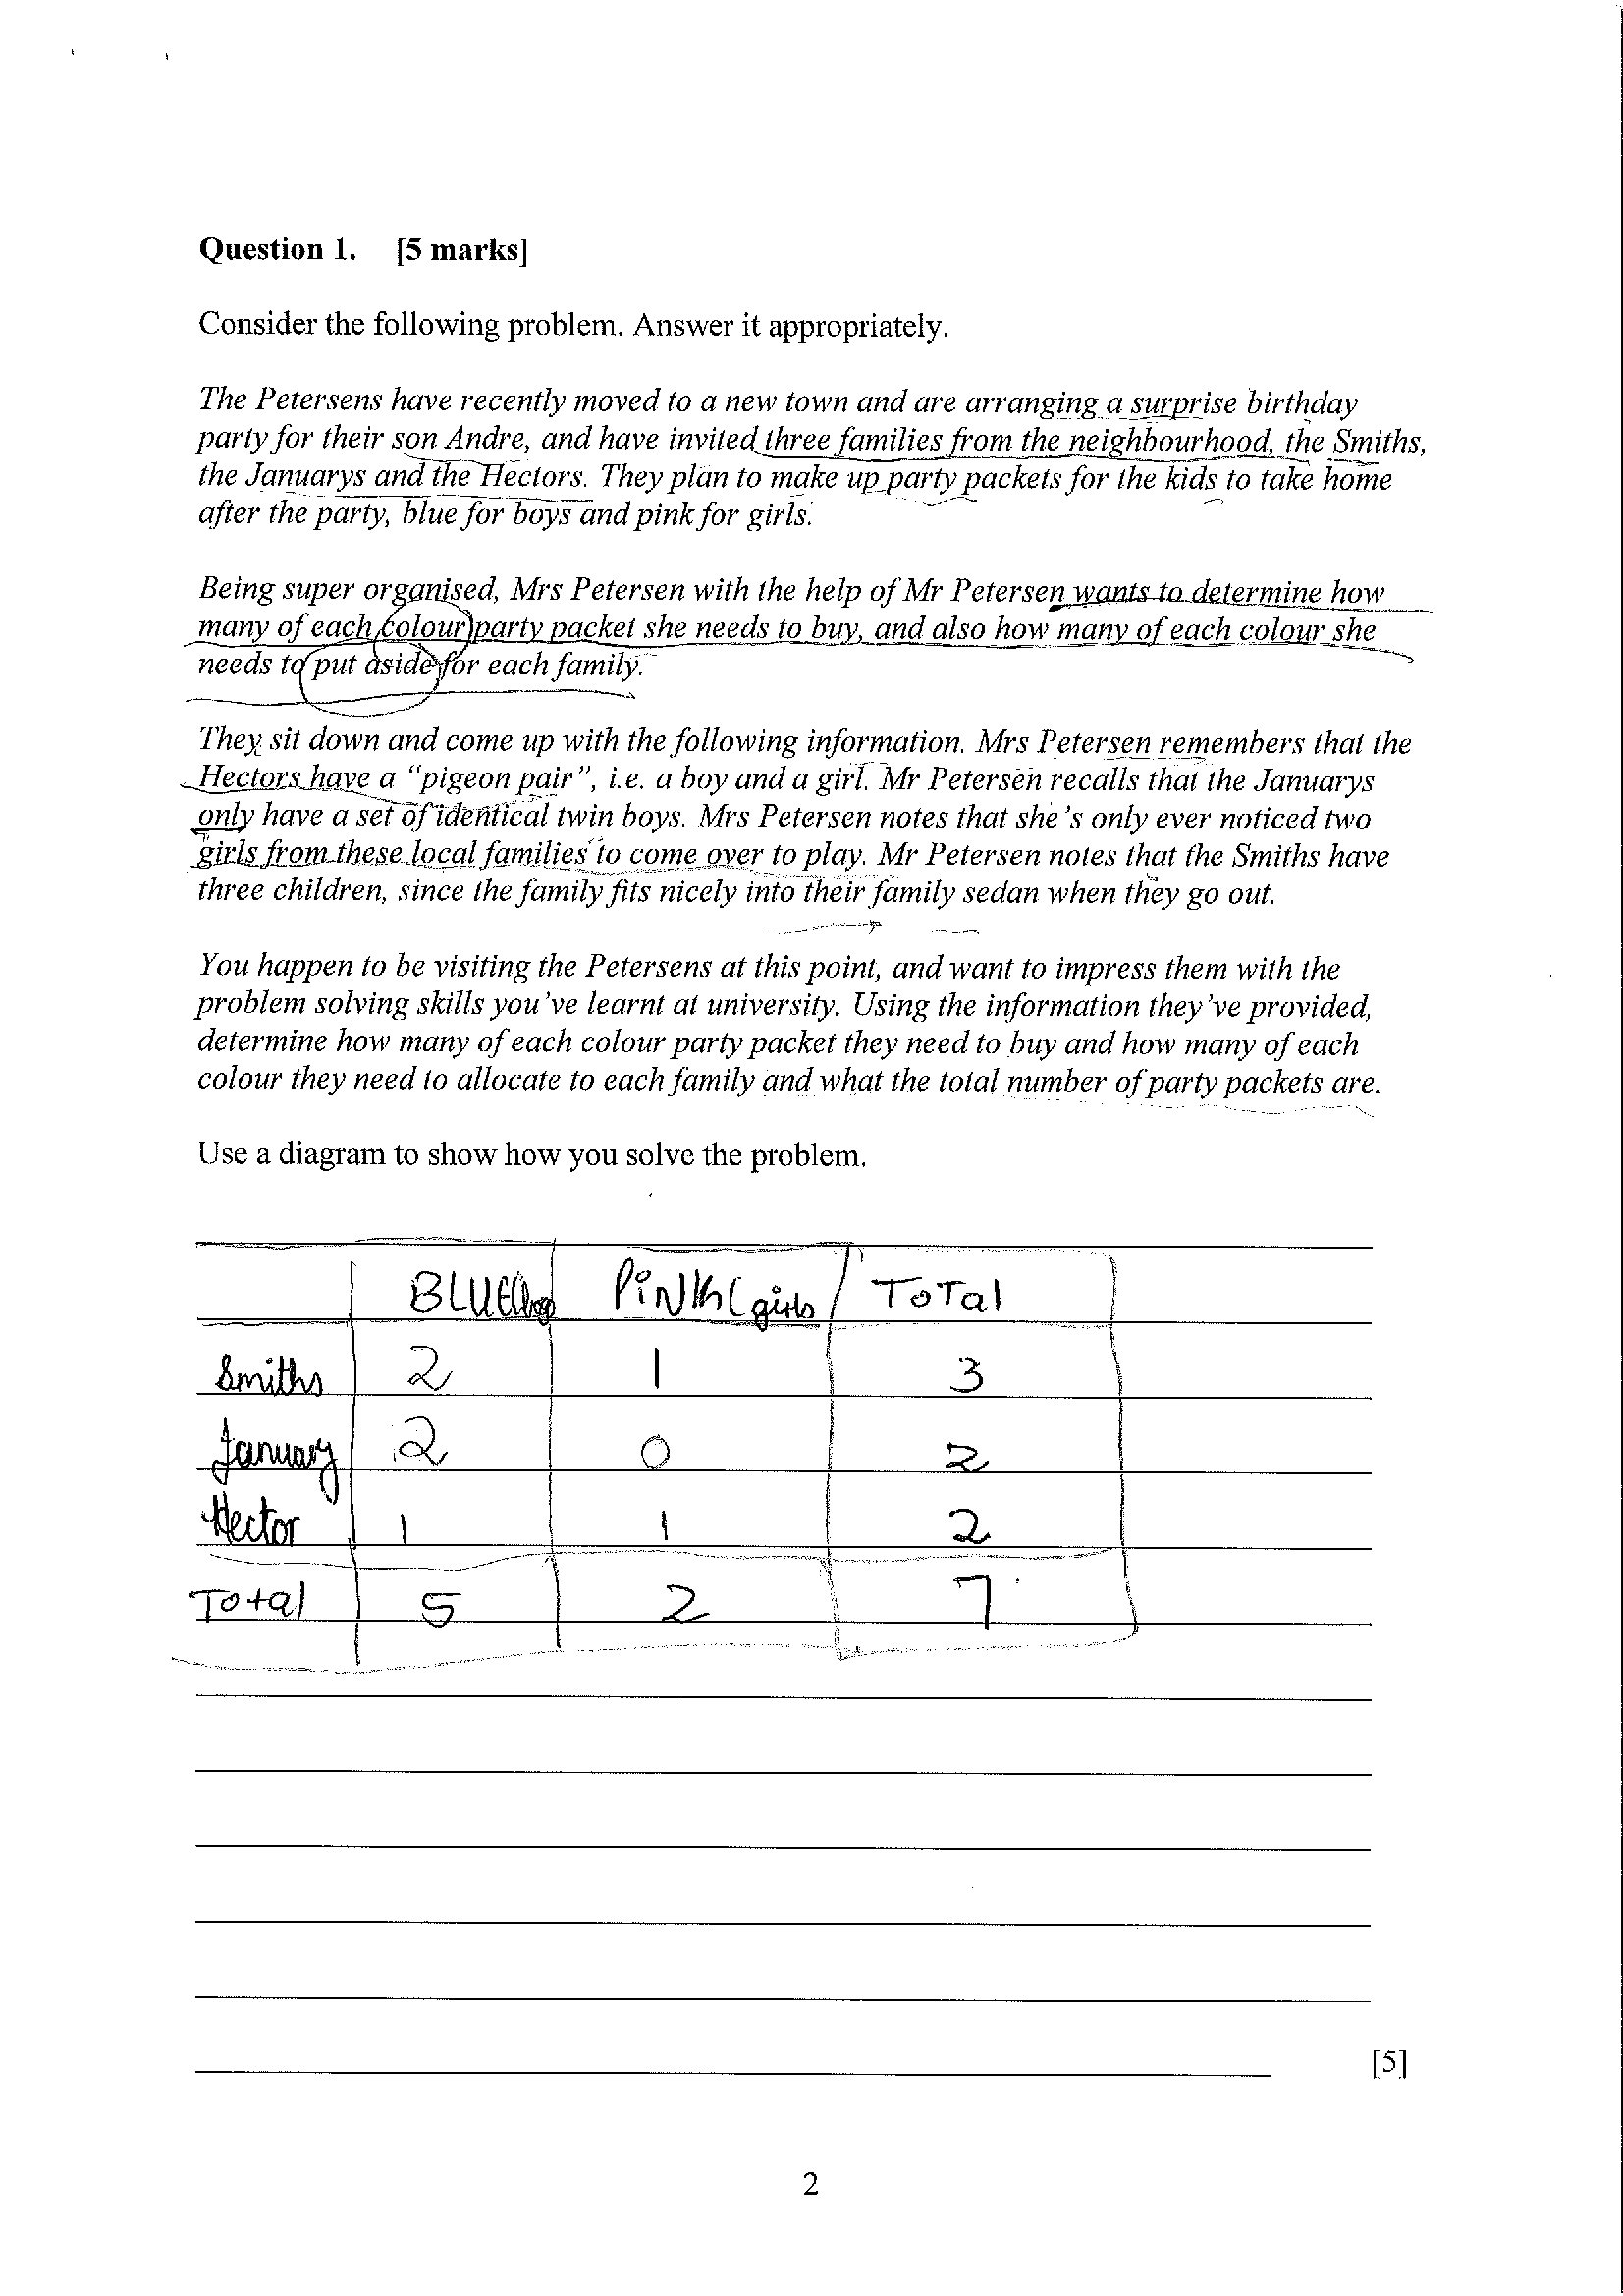 Question 1. [5 marks]
Consider the following problem. Answer it appropriately.
The Petersens have recently moved to a new town and are arranging a surprise birthday
party for their son Andre, and have invited three families from the neighbourhood, the Smiths,
the Januarys and the Hectors. They plan to make up party packets for the kids to take home
after the party, blue for boys and pink for girls.
Being super organised, Mrs Petersen with the help of Mr Petersen wants to determine how
many of each colour party packet she needs to buy, and also how many of each colour she
needs to put aside for each family.
They sit down and come up with the following information. Mrs Petersen remembers that the
Hectors have a “pigeon pair”, i.e. a boy and a girl. Mr Petersen recalls that the Januarys
only have a set of identical twin boys. Mrs Petersen notes that she's only ever noticed two
girls from these local families to come over to play. Mr Petersen notes that the Smiths have
three children, since the family fits nicely into their family sedan when they go out.
You happen to be visiting the Petersens at this point, and want to impress them with the
problem solving skills you've learnt at university. Using the information they've provided,
determine how many of each colour party packet they need to buy and how many of each
colour they need to allocate to each family and what the total number of party packets are.
Use a diagram to show how you solve the problem.
BLUE PINK (girls TOTal
Smiths 2 1 3
January 2 0 2
Hector 1 1 2
Total 5 2 7
[5]
2